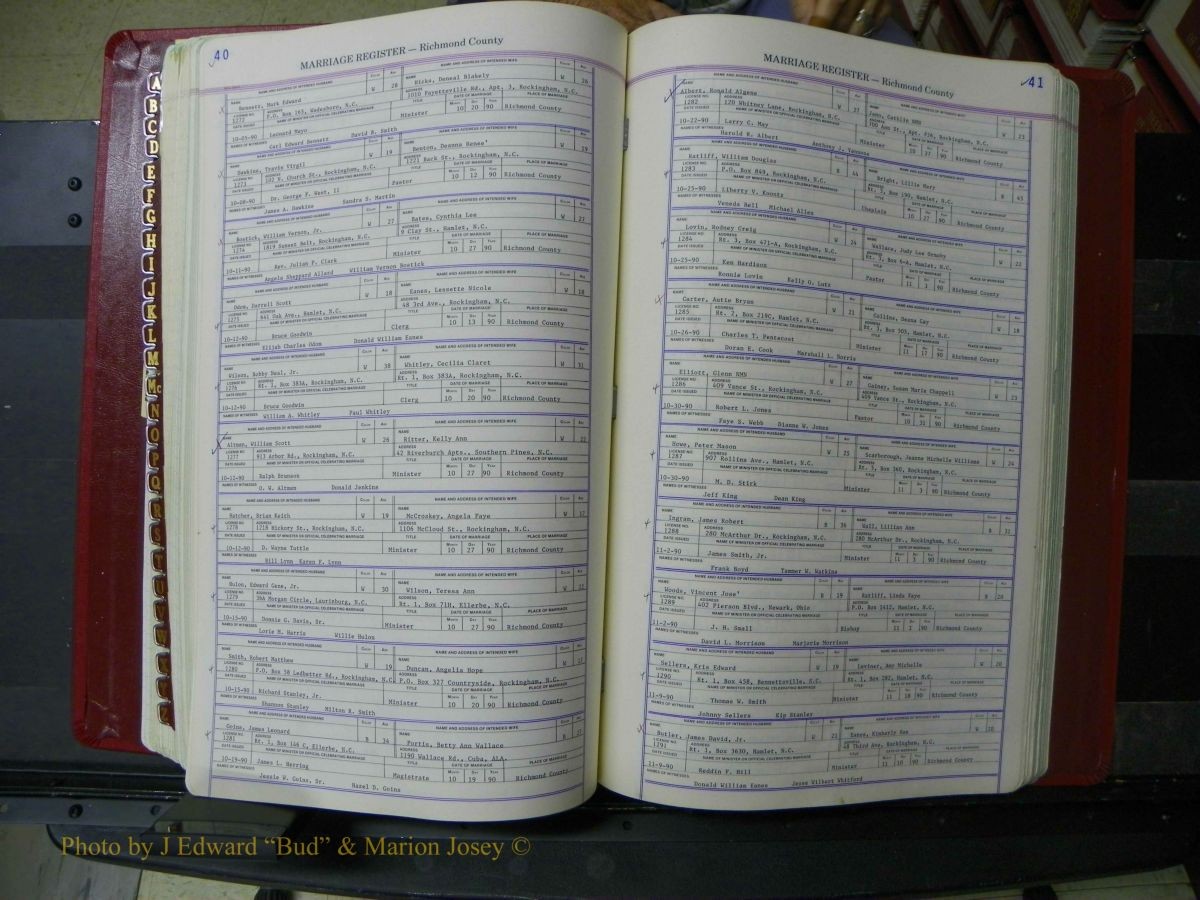 40
MARRIAGE REGISTER — Richmond County
Bennett, Mark Edward W 28 Hicks, Deneal Blakely W 26
1272 P.O. Box 163, Wadesboro, N.C. 1010 Fayetteville Rd., Apt. 3, Rockingham, N.C.
10-05-90 Leonard Mayo Minister 10 20 90 Richmond County
Carl Edward Bennett David R. Smith
Dawkins, Travis Virgil W 19 Benton, Deanna Renee' W 19
1273 102 N. Church St., Rockingham, N.C. 1221 Rock St., Rockingham, N.C.
10-08-90 Dr. George F. West, II Pastor 10 12 90 Richmond County
James A. Dawkins Sandra S. Martin
Bostick, William Vernon, Jr. W 27 Bates, Cynthia Lee W 27
1274 1819 Sunset Belt, Rockingham, N.C. 9 Clay St., Hamlet, N.C.
10-11-90 Rev. Julian P. Clark Minister 10 27 90 Richmond County
Angela Sheppard Allard William Vernon Bostick
Odom, Darrell Scott W 18 Eanes, Lennette Nicole W 18
1275 641 Oak Ave., Hamlet, N.C. 48 3rd Ave., Rockingham, N.C.
10-12-90 Bruce Goodwin Clerg 10 13 90 Richmond County
Elijah Charles Odom Donald William Eanes
Wilson, Bobby Neal, Jr. W 38 Whitley, Cecilia Claret W 31
1276 Rt. 1, Box 383A, Rockingham, N.C. Rt. 1, Box 383A, Rockingham, N.C.
10-12-90 Bruce Goodwin Clerg 10 20 90 Richmond County
William A. Whitley Paul Whitley
Altman, William Scott W 26 Ritter, Kelly Ann W 22
1277 913 Arbor Rd., Rockingham, N.C. 42 Riverburch Apts., Southern Pines, N.C.
10-12-90 Ralph Brunson Minister 10 27 90 Richmond County
O. W. Altman Donald Jenkins
Hatcher, Brian Keith W 19 McCroskey, Angela Faye W 17
1278 1218 Hickory St., Rockingham, N.C. 1106 McCloud St., Rockingham, N.C.
10-12-90 D. Wayne Tuttle Minister 10 27 90 Richmond County
Bill Lynn Karen F. Lynn
Hulon, Edward Gene, Jr. W 30 Wilson, Teresa Ann W 22
1279 36A Morgan Circle, Laurinburg, N.C. Rt. 1, Box 71H, Ellerbe, N.C.
10-15-90 Donnie G. Davis, Sr. Minister 10 27 90 Richmond County
Lorie H. Harris Willie Hulon
Smith, Robert Matthew W 19 Duncan, Angelia Hope W 17
1280 P.O. Box 58 Ledbetter Rd., Rockingham, N.C. P.O. Box 327 Countryside, Rockingham, N.C.
10-15-90 Richard Stanley, Jr. Minister 10 20 90 Richmond County
Shannon Stanley Milton R. Smith
Goins, James Leonard B 34 Purtis, Betty Ann Wallace B 37
1281 Rt. 3, Box 146 C, Ellerbe, N.C. 1190 Wallace Rd., Cuba, ALA.
10-19-90 James L. Herring Magistrate 10 19 90 Richmond County
Jessie W. Goins, Sr. Hazel D. Goins
41
MARRIAGE REGISTER — Richmond County
Albert, Ronald Algene W 27 Jones, Caitlin NMN W 25
1282 120 Whitney Lane, Rockingham, N.C. 700 Ann St., Apt. #26, Rockingham, N.C.
10-22-90 Larry C. May Minister 10 27 90 Richmond County
Harold R. Albert Anthony J.
Ratliff, William Douglas B 44 Bright, Lillie Mary B 45
1283 P.O. Box 849, Rockingham, N.C. Rt. 3, Box 190, Hamlet, N.C.
10-25-90 Liberty V. Koontz Chaplain 10 27 90 Richmond County
Veneda Bell Michael Allen
Lovin, Rodney Craig W 24 Wallace, Judy Lee Grooby W 22
1284 Rt. 3, Box 471-A, Rockingham, N.C. Rt. 3, Box 6-A, Hamlet, N.C.
10-25-90 Ken Hardison Pastor 11 3 90 Richmond County
Ronnie Lovin Kelly O. Lutz
Carter, Autie Bryan W 21 Collins, Deana Lay W 18
1285 Rt. 2, Box 219C, Hamlet, N.C. Rt. 1, Box 303, Hamlet, N.C.
10-26-90 Charles T. Pentecost Minister 11 17 90 Richmond County
Doran E. Cook Marshall L. Norris
Elliott, Glenn NMN W 27 Gainey, Susan Marie Chappell W 23
1286 409 Vance St., Rockingham, N.C. 409 Vance St., Rockingham, N.C.
10-30-90 Robert L. Jones Pastor 10 31 90 Richmond County
Faye S. Webb Dianne W. Jones
Howe, Peter Mason W 25 Scarborough, Jeanne Michelle Williams W 24
1287 907 Rollins Ave., Hamlet, N.C. Rt. 3, Box 360, Rockingham, N.C.
10-30-90 M. D. Stirk Minister 11 3 90 Richmond County
Jeff King Dean King
Ingram, James Robert B 36 Wall, Lillian Ann B 32
1288 280 McArthur Dr., Rockingham, N.C. 280 McArthur Dr., Rockingham, N.C.
11-2-90 James Smith, Jr. Minister 11 3 90 Richmond County
Frank Boyd Tammer W. Watkins
Woods, Vincent Jose' B 19 Ratliff, Linda Faye B 20
1289 402 Pierson Blvd., Newark, Ohio P.O. Box 1412, Hamlet, N.C.
11-2-90 J. H. Small Bishop 11 90 Richmond County
David L. Morrison Marjorie Morrison
Sellers, Kris Edward W 19 Laviner, Amy Michelle W 20
1290 Rt. 1, Box 458, Bennettsville, S.C. Rt. 1, Box 282, Hamlet, N.C.
11-9-90 Thomas W. Smith Minister 11 18 90 Richmond County
Johnny Sellers Kip Stanley
Butler, James David, Jr. W 21 Eanes, Kimberly Rae W 20
1291 Rt. 1, Box 3630, Hamlet, N.C. 48 Third Ave., Rockingham, N.C.
11-9-90 Reddin F. Hill Minister 11 10 90 Richmond County
Donald William Eanes Jesse Wilbert Whitford
A
B
C
D
E
F
G
H
I
J
K
L
M
Mc
N
O
P
Q
R
S
Photo by J Edward "Bud" & Marion Josey ©